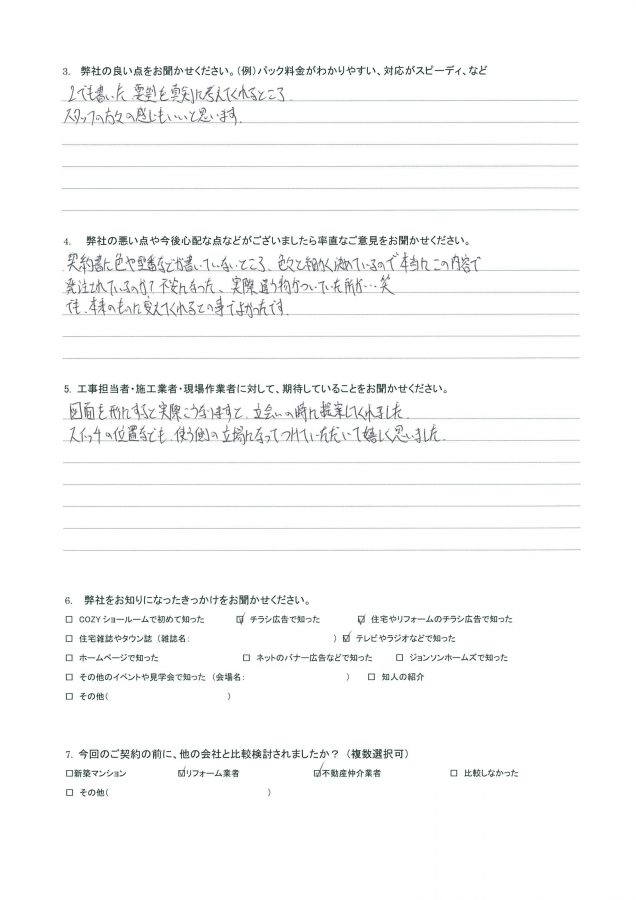 3. 弊社の良い点をお聞かせください。（例）パック料金がわかりやすい、対応がスピーディ、など
2でも書いた 要望を真剣に考えてくれるところ.
スタッフの方々の感じもいいと思います.
4. 弊社の悪い点や今後心配な点などがございましたら率直なご意見をお聞かせください。
契約書に色や型番などが書いていないところ、色々と細かく決めているので本当にこの内容で
発注されているのか? 不安になった、実際違う物がついていた所が…笑
でも、本来のものに変えてくれるとの事でよかったです.
5. 工事担当者・施工業者・現場作業者に対して、期待していることをお聞かせください。
図面を形にすると実際こうなりますと、立会いの時に提案してくれました.
スイッチの位置なども、使う側の立場になってつけていただいて嬉しく思いました.
6. 弊社をお知りになったきっかけをお聞かせください。
□ COZYショールームで初めて知った ☑ チラシ広告で知った ☑ 住宅やリフォームのチラシ広告で知った
□ 住宅雑誌やタウン誌（雑誌名： ） ☑ テレビやラジオなどで知った
□ ホームページで知った □ ネットのバナー広告などで知った □ ジョンソンホームズで知った
□ その他のイベントや見学会で知った（会場名： ） □ 知人の紹介
□ その他（ ）
7. 今回のご契約の前に、他の会社と比較検討されましたか？（複数選択可）
□新築マンション ☑リフォーム業者 ☑不動産仲介業者 □ 比較しなかった
□ その他（ ）